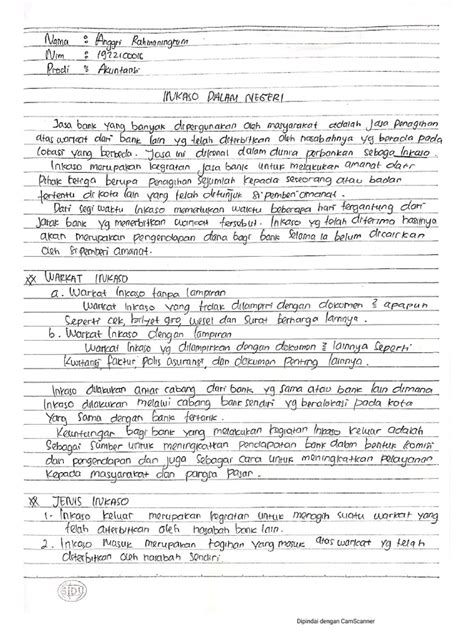 Nama : Anggri Rahmaningrum
Nim :
Prodi : Akuntansi
INKASO DALAM NEGERI
Jasa bank yang banyak dipergunakan oleh masyarakat adalah jasa penagihan
atas warkat dari bank lain yg telah diterbitkan oleh nasabahnya yg berada pada
lokasi yang berbeda. Jasa ini dikenal dalam dunia perbankan sebagai Inkaso.
Inkaso merupakan kegiatan jasa bank untuk melakukan amanat dari
Pihak ketiga berupa penagihan sejumlah kepada seseorang atau badan
tertentu di kota lain yang telah ditunjuk si pemberi amanat.
Dari segi waktu Inkaso memerlukan waktu beberapa hari tergantung dari
Jarak bank yg menerbitkan warkat tersebut. Inkaso yg telah diterima hasilnya
akan merupakan pengendapan dana bagi bank selama ia belum dicairkan
oleh si pemberi amanat.
※ WARKAT INKASO
a. Warkat Inkaso tanpa lampiran
Warkat Inkaso yang tidak dilampiri dengan dokumen ² apapun
Seperti cek, bilyet giro, wesel dan surat berharga lainnya.
b. Warkat Inkaso dengan lampiran
Warkat Inkaso yg dilampirkan dengan dokumen ² lainnya seperti
Kwitansi, faktur, polis asuransi, dan dokumen penting lainnya.
Inkaso dilakukan antar cabang dari bank yg sama atau bank lain dimana
Inkaso dilakukan melalui cabang bank sendiri yg berlokasi pada kota
Yang sama dengan bank tertarik.
Keuntungan bagi bank yang melakukan kegiatan Inkaso keluar adalah
Sebagai sumber untuk meningkatkan pendapatan bank dalam bentuk komisi
dan pengendapan dan juga sebagai cara untuk meningkatkan pelayanan
kepada masyarakat dan pangsa pasar.
※ JENIS INKASO
1. Inkaso keluar merupakan kegiatan untuk menagih suatu warkat yang
telah diterbitkan oleh nasabah bank lain.
2. Inkaso Masuk merupakan tagihan yang masuk atas warkat yg telah
diterbitkan oleh nasabah sendiri.
Dipindai dengan CamScanner